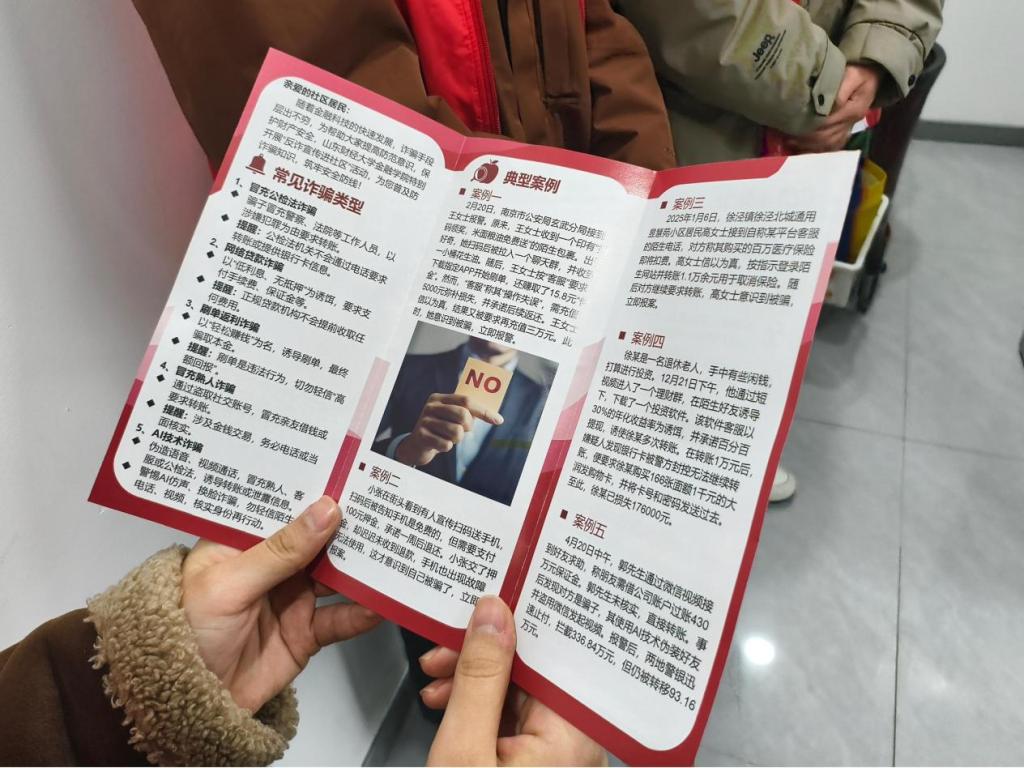 亲爱的社区居民：
随着金融科技的快速发展，诈骗手段
层出不穷，为帮助大家提高防范意识，保
护财产安全，山东财经大学金融学院特别
开展“反诈宣传进社区”活动，为您普及防
诈骗知识，筑牢安全防线！
常见诈骗类型
1、冒充公检法诈骗
◆ 骗子冒充警察、法院等工作人员，以
涉嫌犯罪为由要求转账。
◆ 提醒：公检法机关不会通过电话要求
转账或提供银行卡信息。
2、网络贷款诈骗
◆ 以“低利息、无抵押”为诱饵，要求支
付手续费、保证金等。
◆ 提醒：正规贷款机构不会提前收取任
何费用。
3、刷单返利诈骗
◆ 以“轻松赚钱”为名，诱导刷单，最终
骗取本金。
◆ 提醒：刷单是违法行为，切勿轻信“高
额回报”。
4、冒充熟人诈骗
◆ 通过盗取社交账号，冒充亲友借钱或
要求转账。
◆ 提醒：涉及金钱交易，务必电话或当
面核实。
5、AI技术诈骗
◆ 伪造语音、视频通话，冒充熟人、客
服或公检法，诱导转账或泄露信息。
◆ 警惕AI仿声、换脸诈骗，勿轻信陌生
电话、视频，核实身份再行动。
典型案例
■ 案例一
2月20日，南京市公安局玄武分局接到
王女士报警。原来，王女士收到一个印有“扫
码领奖，米面粮油免费送”的陌生包裹。出于
好奇，她扫码后被拉入一个聊天群，并收到
一小桶花生油。随后，王女士按“客服”要求
下载指定APP开始刷单，还赚取了15.8元“佣
金”。然而，“客服”称其“操作失误”，需充值
5000元弥补损失，并承诺后续返还。王女士
信以为真，结果又被要求再充值三万元。此
时，她意识到被骗，立即报警。
NO
■ 案例二
小张在街头看到有人宣传扫码送手机，
扫码后被告知手机是免费的，但需要支付
100元押金，承诺一周后退还。小张交了押
金，却迟迟未收到退款，手机也出现故障
无法使用，这才意识到自己被骗了，立即
报案。
■ 案例三
2025年1月6日，徐泾镇徐泾北城通用
慧苑小区居民高女士接到自称某平台客服
的陌生电话，对方称其购买的百万医疗保险
即将扣费。高女士信以为真，按指示登录陌
生网站并转账1.1万余元用于取消保险。随
后对方继续要求转账，高女士意识到被骗，
立即报案。
■ 案例四
徐某是一名退休老人，手中有些闲钱，
打算进行投资，12月21日下午，他通过短
视频进入了一个理财群，在陌生好友诱导
下，下载了一个投资软件。该软件客服以
30%的年化收益率为诱饵，并承诺百分百
提现，诱使徐某多次转账。在转账1万元后，
嫌疑人发现银行卡被警方封控无法继续转
账，便要求徐某购买166张面额1千元的大
润发购物卡，并将卡号和密码发送过去。
至此，徐某已损失176000元。
■ 案例五
4月20日中午，郭先生通过微信视频接
到好友求助，称朋友需借公司账户过账430
万元保证金，郭先生未核实，直接转账。事
后发现对方是骗子，其使用AI技术伪装好友
并盗用微信发起视频。报警后，两地警银迅
速止付，拦截336.84万元，但仍被转移93.16
万元。
Jeep